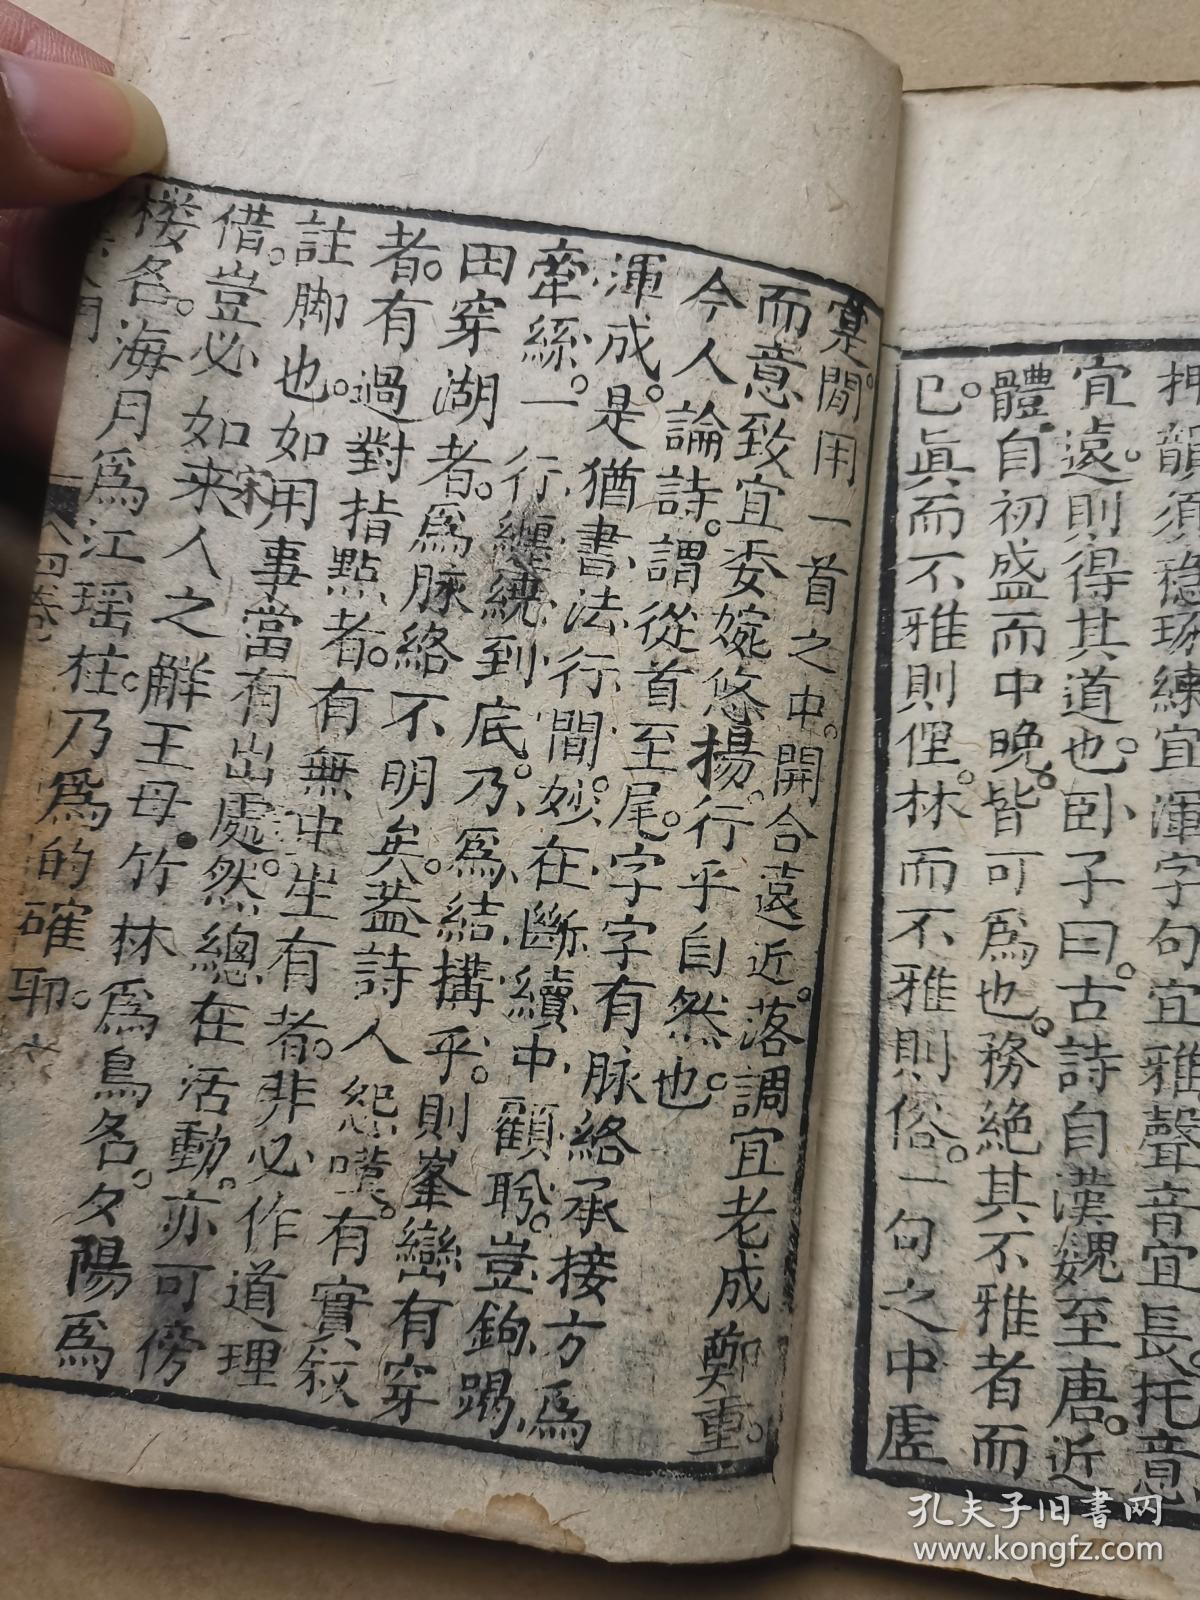 押韻須穩琢練宜渾字句宜雅聲音宜長。托意
宜遠。則得其道也。卧子曰。古詩自漢魏至唐。近
體。自初盛而中晚。皆可為也。務絕其不雅者而
已。眞而不雅則俚。林而不雅則俗。一句之中虗
寔。閒用一首之中。開合遠近。落調宜老成鄭重。
而意致宜委婉悠揚。行乎自然也
今人論詩。謂從首至尾。字字有脉絡承接方為
渾成。是猶書法行間。妙在斷續中顧盻。豈鉤踢
牽絲。一行纏繞到底。乃為結搆乎。則峯巒有穿
田穿湖者。為脉絡不明矣。葢詩人怨嘆。有實叙
者。有過對指點者。有無中生有者。非必作道理
註脚也。如用事當有出處。然總在活動。亦可傍
借。豈必如宋來人之解王母。竹林為鳥名。夕陽為
楼名。海月為江瑶柱。乃為的確耶。
八四卷
六
孔夫子旧書网
www.kongfz.com